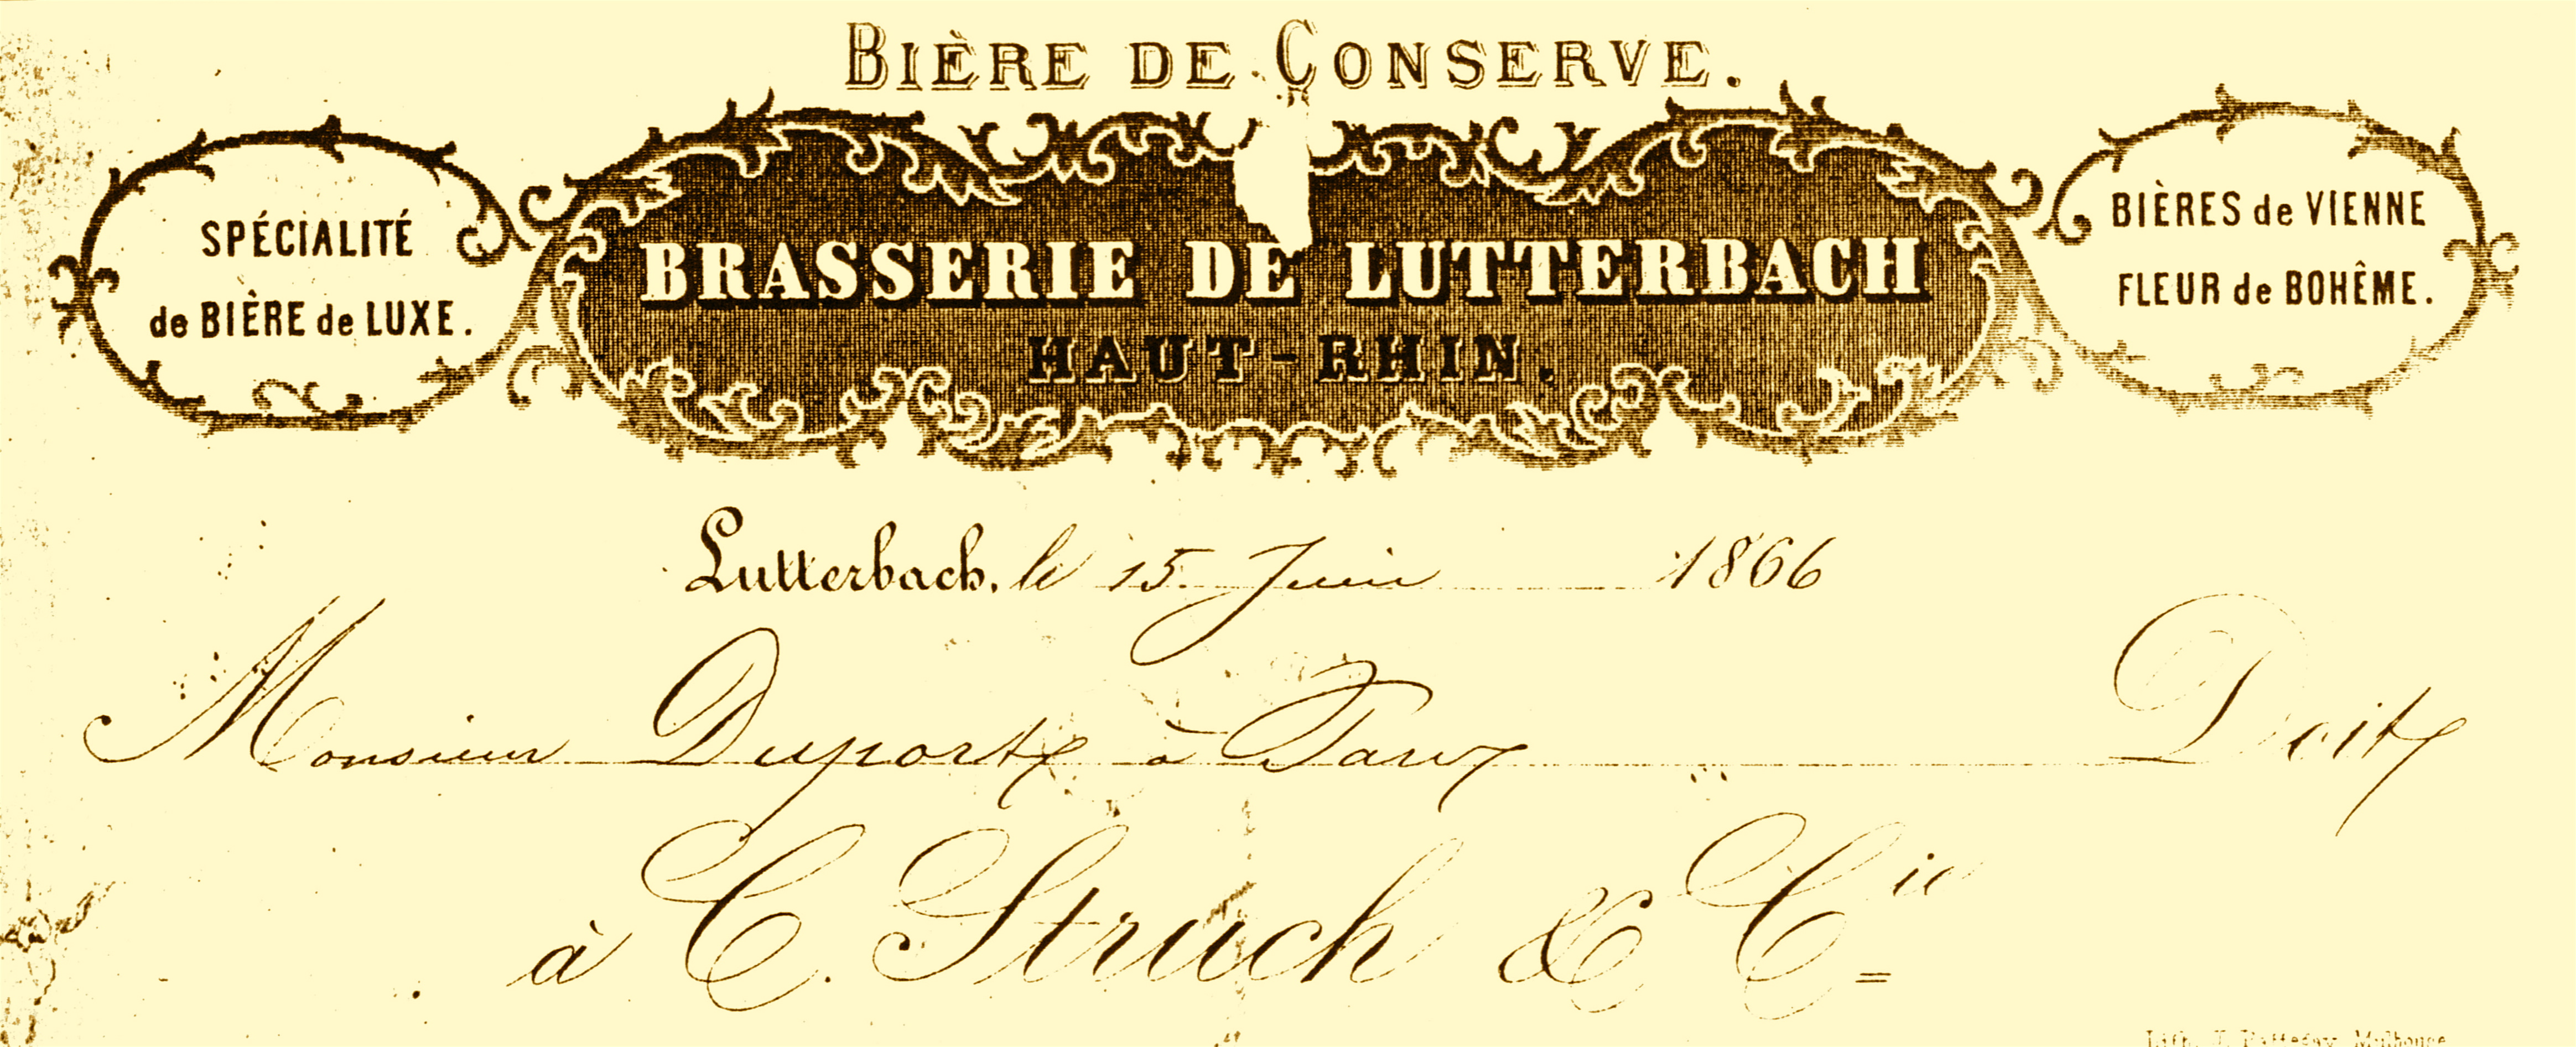 BIÈRE DE CONSERVE.
SPÉCIALITÉ
de BIÈRE de LUXE.
BRASSERIE DE LUTTERBACH
HAUT-RHIN.
BIÈRES de VIENNE
FLEUR de BOHÊME.
Lutterbach, le 15 Juin 1866
Monsieur Duport à Doit
à C. Struch & Cie
Lith. Mulhouse